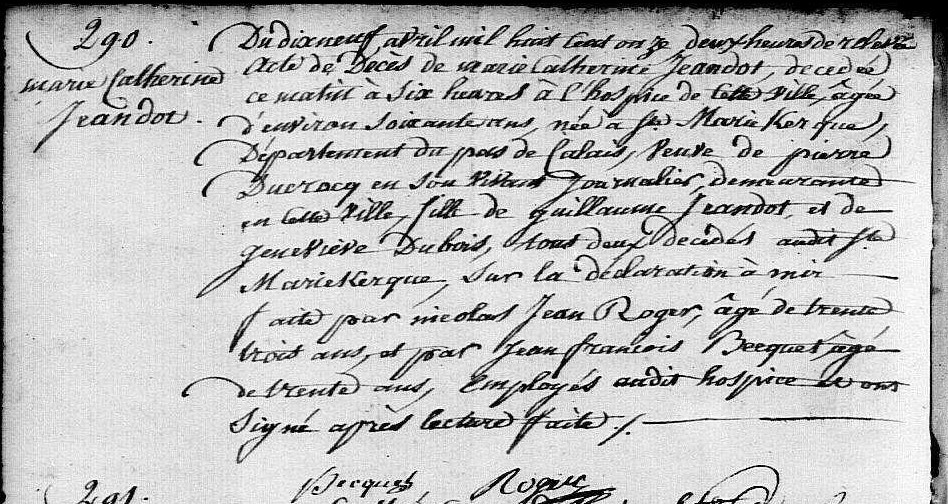 290.
marie Catherine
Jeandot.
Du dix neuf avril mil huit cent onze deux heures de relevée
Acte de Décès de marie Catherine Jeandot, décedée
ce matin à six heures à l'hospice de cette ville, âgée
d'environ soixante ans, née à Ste Marie Kerque,
Département du pas de Calais, veuve de pierre
Ducrocq en son vivant Journalier, demeurante
en cette ville, fille de guillaume Jeandot, et de
genevieve Dubois, tous deux décédés audit Ste
Marie Kerque, sur la déclaration à moi
faite par nicolas Jean Roger, âgé de trente
trois ans, et par Jean francois Becquet, âgé
de trente ans, Employés audit hospice et ont
Signé après lecture faite ./.
Becquet Roger
291.